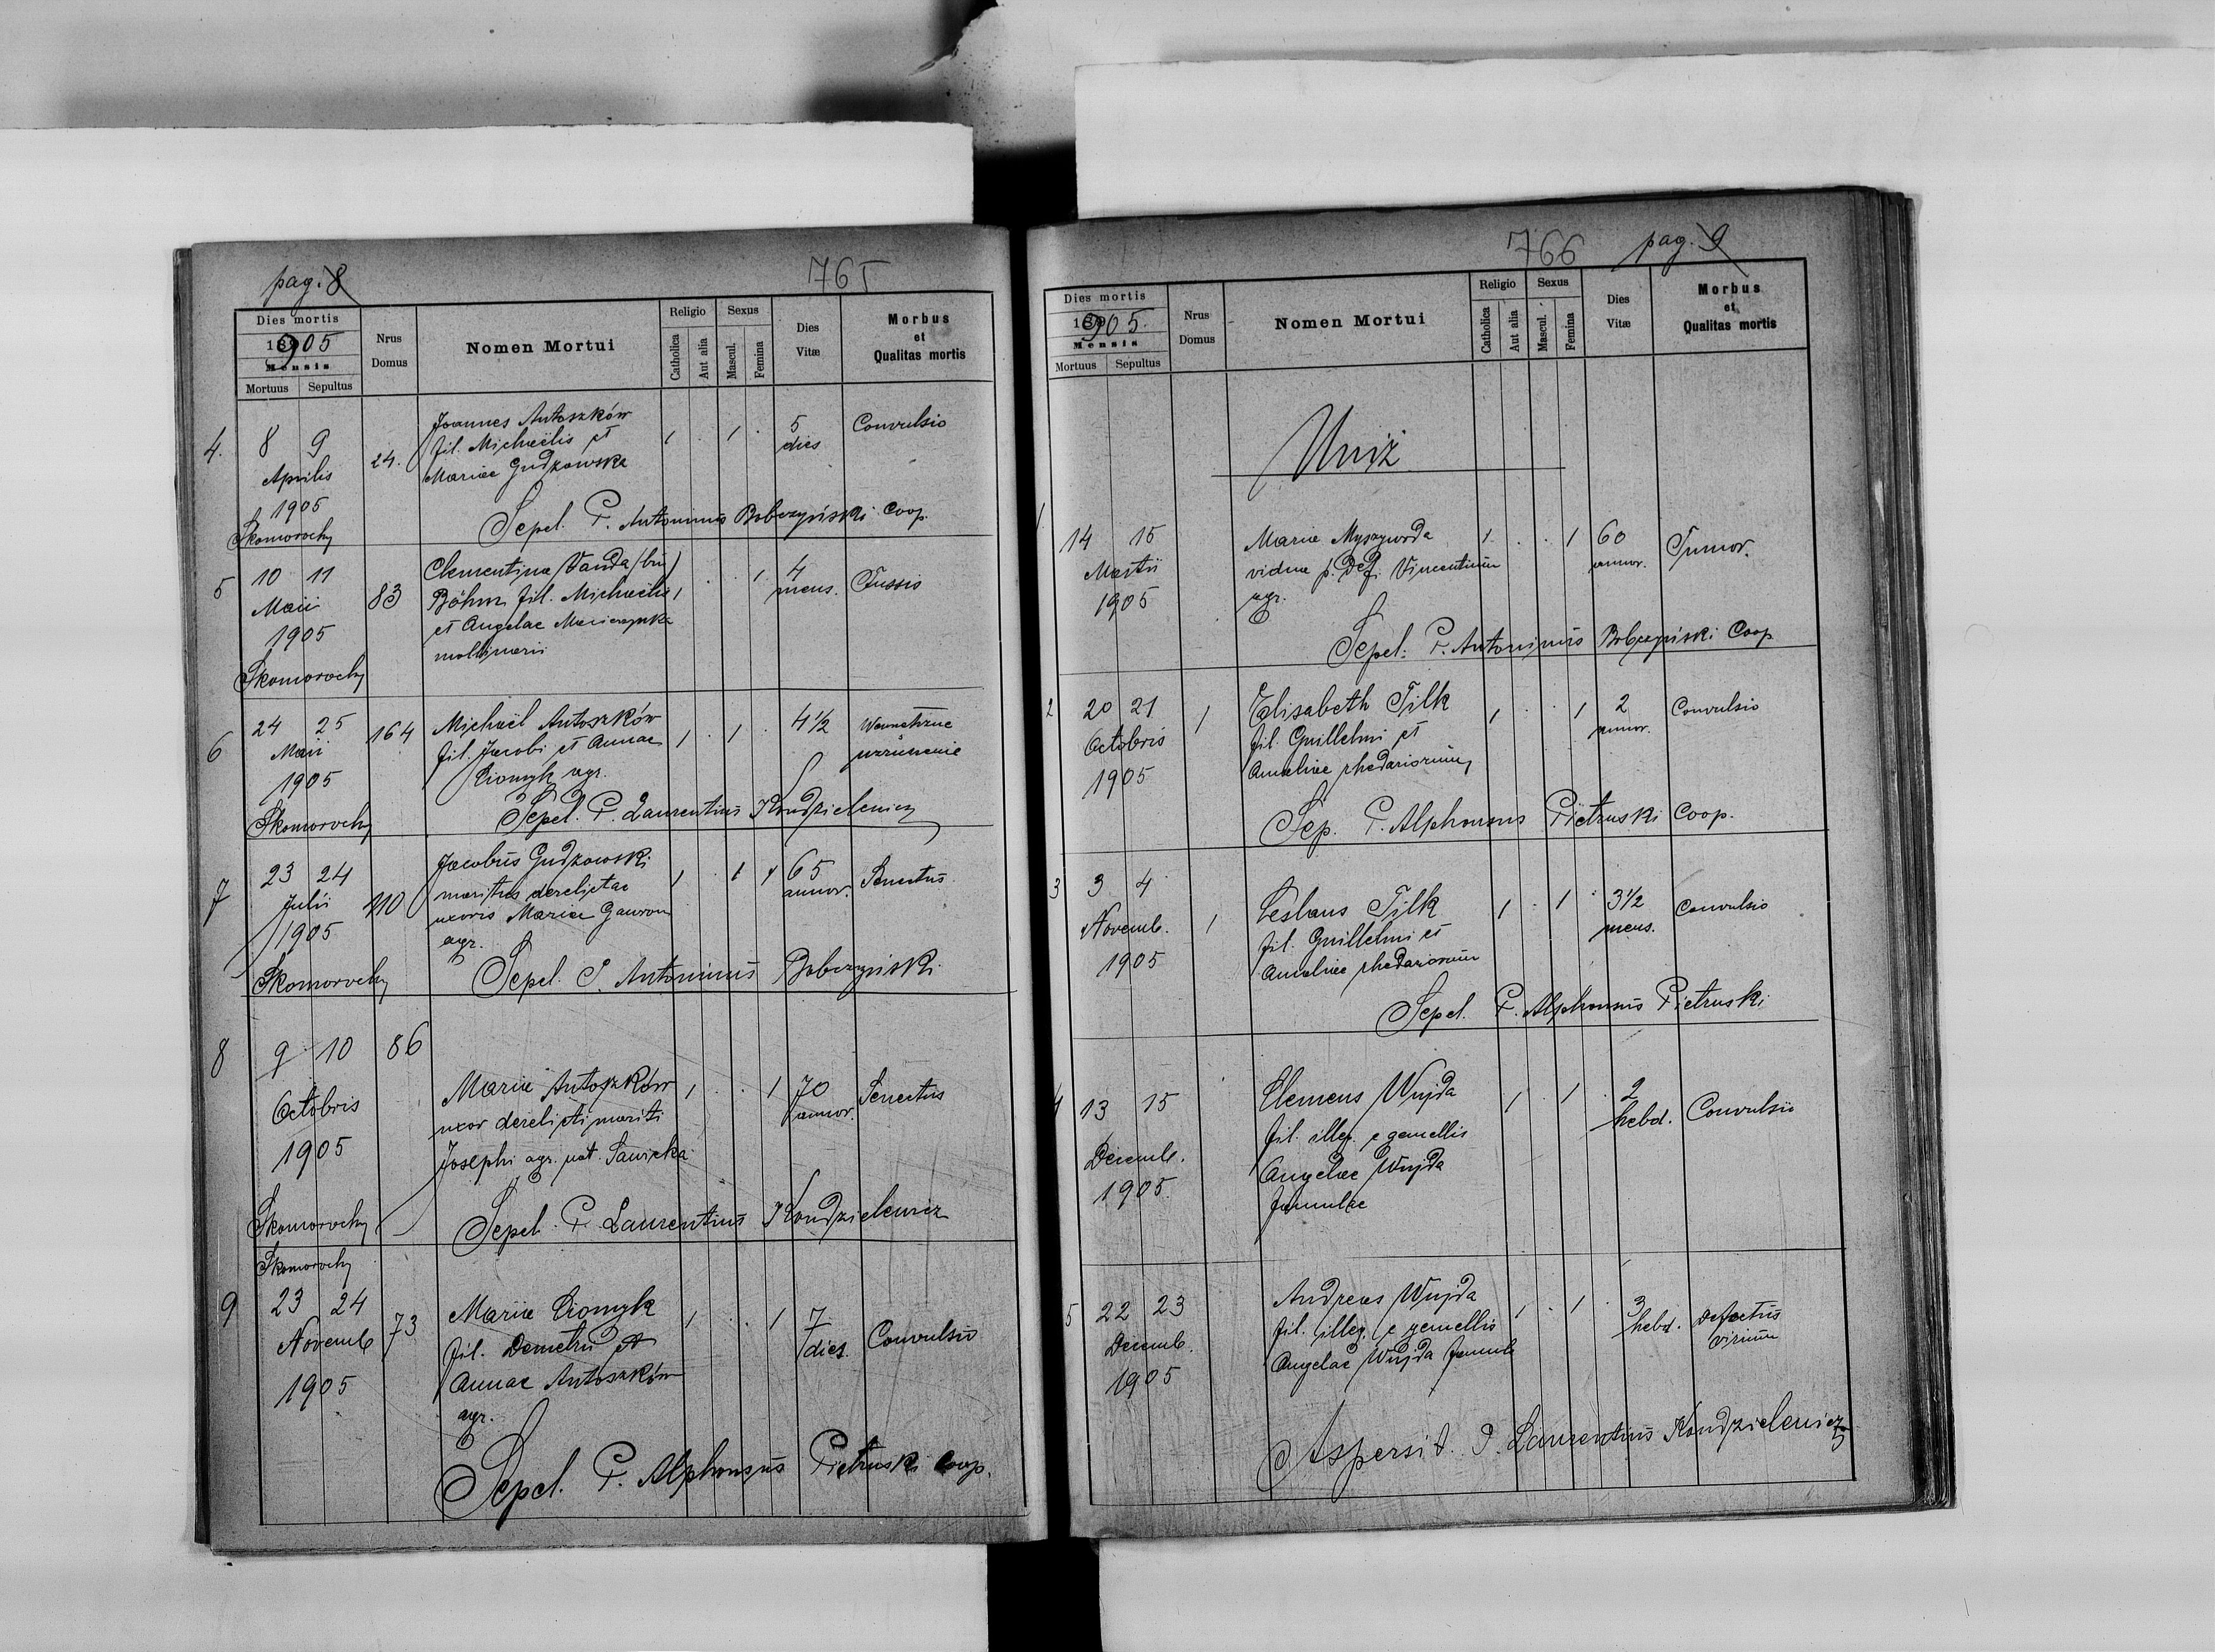 pag. 8
765
Dies mortis
1905
Mensis
Mortuus Sepultus
Nrus Domus
Nomen Mortui
Religio
Catholica
Aut alia
Sexus
Mascul.
Femina
Dies Vitæ
Morbus et Qualitas mortis
4. 8 9 24. Joannes Antoszków 1 . 1 . 5 Convulsio
Aprilis fil. Michaëlis et dies
1905 Mariae Gudzowska
Skomorochy Sepel. P. Antoninus Bobrzyński Coop.
5 10 11 83 Clementina Vanda (bin) 1 . . 1 4 Tussis
Maii Böhm fil. Michaelis mens.
1905 et Angelae
Skomorochy
6 24 25 164 Michaël Antoszków 1 . 1 . 4 1/2 Wewnetrzne
Maii fil. Jacobi et Annae
1905 Ciomyk agr.
Skomorochy Sepel. P. Laurentius Kondzielewicz
7 23 24 110 Jacobus Gudzowski 1 . 1 65 Senectus
Julii maritus derelictae annor.
1905 uxoris Mariae Gawron
agr.
Skomorochy Sepel. P. Antoninus Bobrzyński
8 9 10 86
Octobris Maria Antoszków 1 . . 1 70 Senectus
uxor derelicti mariti annor.
1905 Josephi agr. nat. Sawicka
Skomorochy Sepel. P. Laurentius Kondzielewicz
Skomorochy
9 23 24 73 Maria Ciomyk 1 . . 1 7 Convulsio
Novemb fil. Demetrii et dies.
1905 Annae Antoszków
agr.
Sepel. P. Alphonsus Pietruski Coop.
766
pag. 9
Dies mortis
1905.
Mensis
Mortuus Sepultus
Nrus Domus
Nomen Mortui
Religio
Catholica
Aut alia
Sexus
Mascul.
Femina
Dies Vitæ
Morbus et Qualitas mortis
Uniż
1 14 15 Maria Myszywoda 1 . . 1 60 Tumor.
Martii vidua p. def. Vincentium annor.
1905 agr.
Sepel. P. Antoninus Bobrzyński Coop
2 20 21 1 Elisabeth Tilk 1 . . 1 2 Convulsio
Octobris fil. Guillelmi et annor.
1905 Amaliae rhedariorum
Sep. P. Alphonsus Pietruski Coop.
3 3 4 1 Ceslaus Tilk 1 . 1 . 3 1/2 Convulsio
Novemb. fil. Guillelmi et mens.
1905 Amaliae rhedariorum
Sepel. P. Alphonsus Pietruski
4 13 15 Clemens Wujda 1 . 1 . 2 Convulsio
fil. illeg. e gemellis hebd.
Decemb. Angelae Wujda
1905. famulae
5 22 23 Andreas Wujda 1 . 1 . 3 Defectus
Decemb. fil. illeg. e gemellis hebd. virium
1905 Angelae Wujda famul
Aspersit P. Laurentius Kondzielewicz